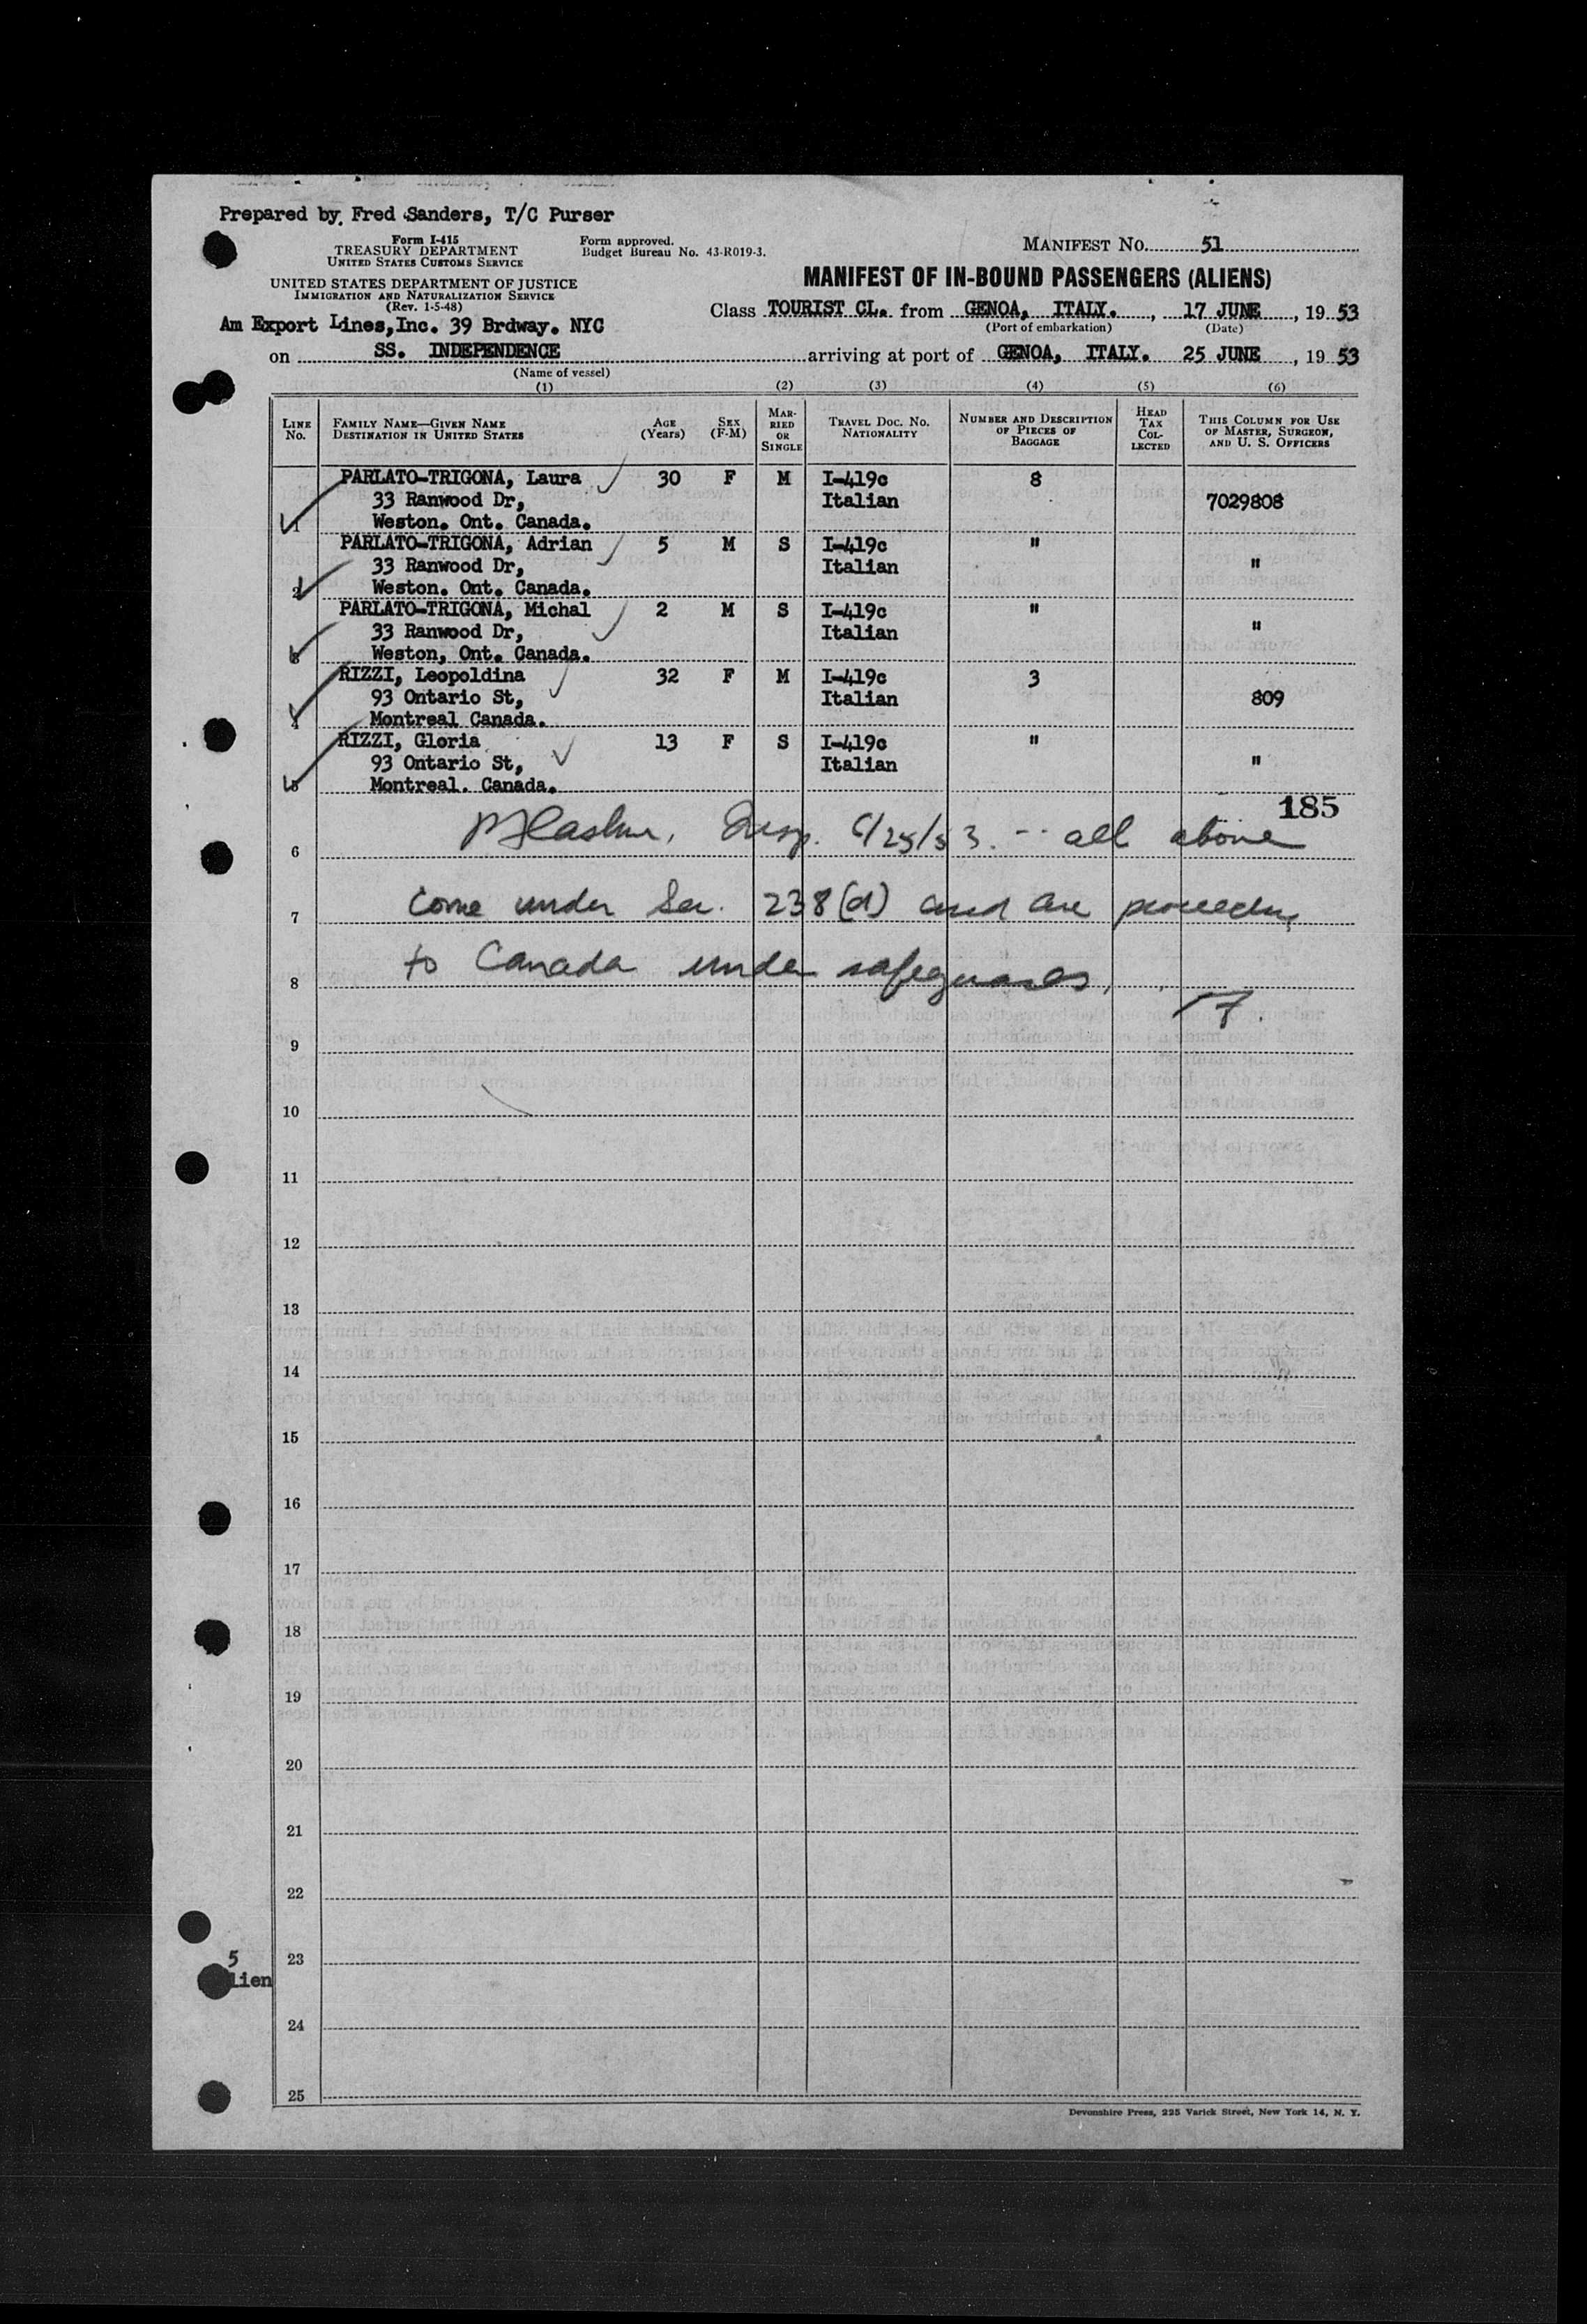 Prepared by Fred Sanders, T/C Purser
Form I-415
TREASURY DEPARTMENT
UNITED STATES CUSTOMS SERVICE
Form approved.
Budget Bureau No. 43-R019-3.
MANIFEST No. 51
UNITED STATES DEPARTMENT OF JUSTICE
IMMIGRATION AND NATURALIZATION SERVICE
(Rev. 1-5-48)
MANIFEST OF IN-BOUND PASSENGERS (ALIENS)
Am Export Lines,Inc. 39 Brdway. NYC
Class TOURIST CL. from GENOA, ITALY. , 17 JUNE , 19 53
(Port of embarkation) (Date)
on SS. INDEPENDENCE arriving at port of GENOA, ITALY. 25 JUNE , 19 53
(Name of vessel)
(1) (2) (3) (4) (5) (6)
LINE No. FAMILY NAME—GIVEN NAME DESTINATION IN UNITED STATES AGE (Years) SEX (F-M) MARRIED OR SINGLE TRAVEL DOC. NO. NATIONALITY NUMBER AND DESCRIPTION OF PIECES OF BAGGAGE HEAD TAX COLLECTED THIS COLUMN FOR USE OF MASTER, SURGEON, AND U. S. OFFICERS
PARLATO-TRIGONA, Laura 30 F M I-419c 8
33 Ranwood Dr, Italian 7029808
1 Weston. Ont. Canada.
PARLATO-TRIGONA, Adrian 5 M S I-419c "
33 Ranwood Dr, Italian "
2 Weston. Ont. Canada.
PARLATO-TRIGONA, Michal 2 M S I-419c "
33 Ranwood Dr, Italian "
3 Weston, Ont. Canada.
RIZZI, Leopoldina 32 F M I-419c 3
93 Ontario St, Italian 809
4 Montreal Canada.
RIZZI, Gloria 13 F S I-419c "
93 Ontario St, Italian "
5 Montreal. Canada.
185
6 Insp. 6/25/53. -- all above
7 come under Sec. 238(d) and are proceeding
8 to Canada under safeguards.
9
10
11
12
13
14
15
16
17
18
19
20
21
22
5
23
lien
24
25
Devonshire Press, 225 Varick Street, New York 14, N. Y.